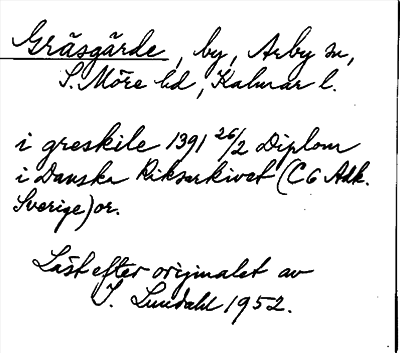 Gräsgärde, by, Arby sn,
S. Möre hd, Kalmar l.
i greskile 1391 26/2 Diplom
i Danska Riksarkivet (C6 Adk.
Sverige) or.
Läst efter originalet av
I. Lundahl 1952.